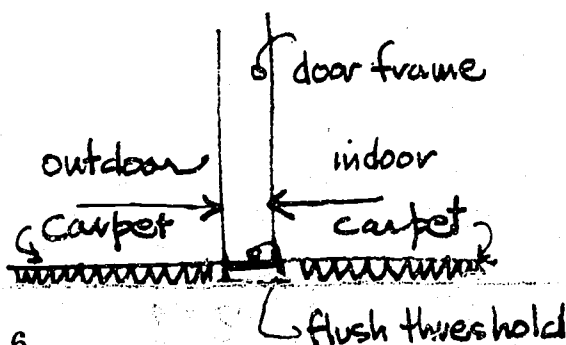 door frame
outdoor indoor
carpet carpet
flush threshold
6